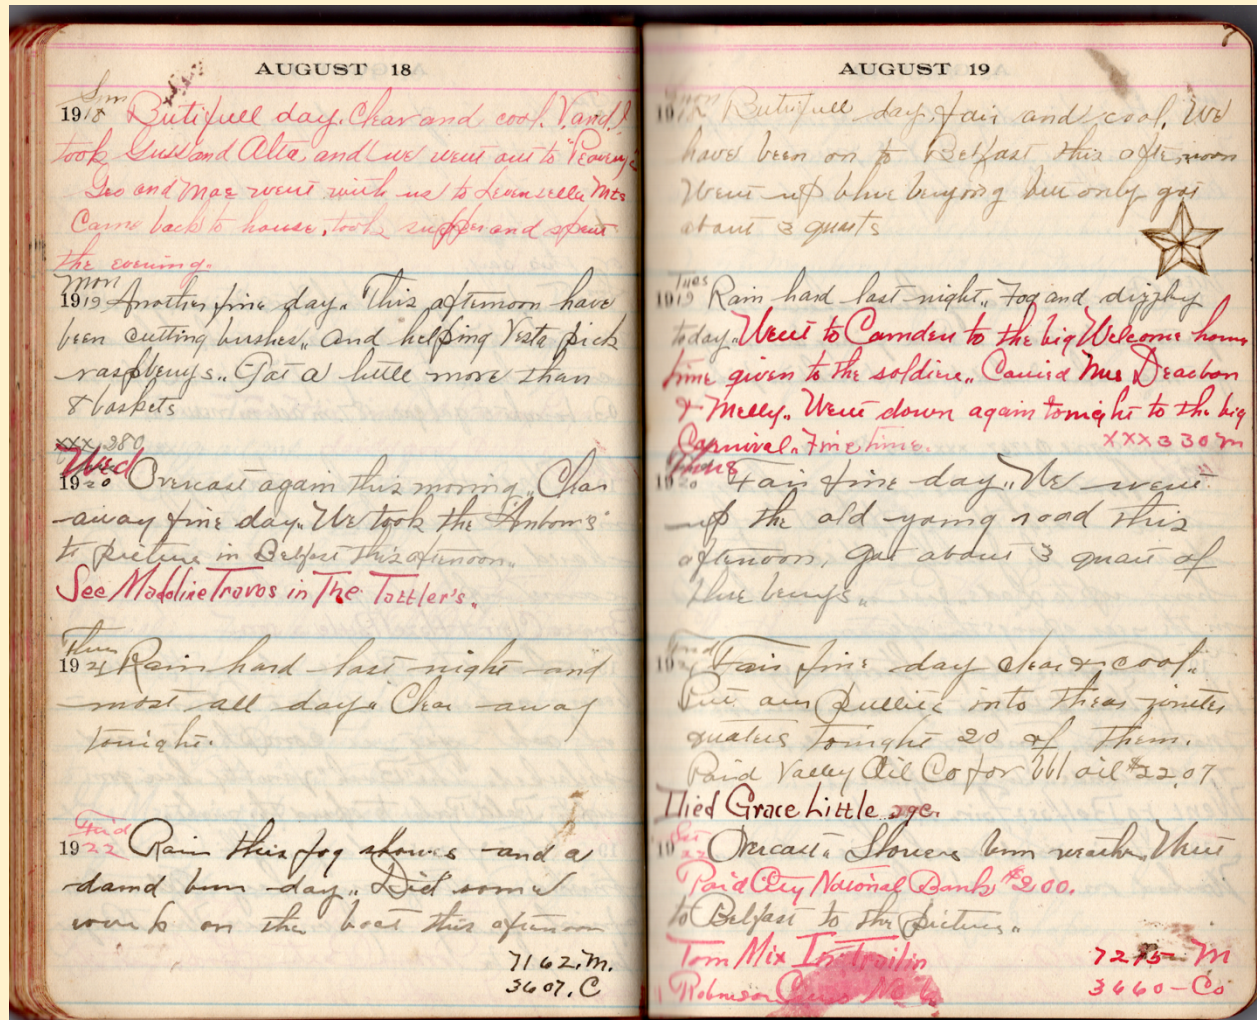 AUGUST 18
Sun
1918 Butifull day. Clear and cool. V. and I
took Guss and Alta, and we went out to "Peavey's
Geo and Mae went with us to Levenselle Mts
Came back to house, took supper and spent
the evening.
Mon
1919 Another fine day. This afternoon have
been cutting bushes, and helping Vesta pick
raspberrys.. Got a little more than
8 baskets
xxx 280
Wed
1920 Overcast again this morning.. Clear
away fine day.. We took the
to picture in Belfast this afternoon..
See Madoline Travos in The Tattler's..
Thurs
1921 Rain hard last night and
most all day. Clear away
tonight.
Frid
1922 Rain this fog showers and a
damd bum day.. Did some
work on the boat this afternoon
7162.M.
3607.C
AUGUST 19
Mon
1918 Butifull day, fair and cool. We
have been on to Belfast this afternoon
Went up blue berrying but only got
about 3 quarts
Tues
1919 Rain hard last night.. Fog and dizzley
today.. Went to Camden to the big Welcome home
time given to the soldiers.. Carried Mrs Deacbon
& Melly.. Went down again tonight to the big
Carnival. Fine time. xxx 330 m
Thurs
1920 Fair fine day.. We went
up the old young road this
afternoon, got about 3 quart of
blue berrys..
Frid
1921 Fair fine day clear & cool..
Put our pullies into theas winter
quaters tonight 20 of them.
Paid Valley Oil Co for bbl oil $22.07
Died Grace Little age
Sat
1922 Overcast. Showers bum weather. Went
Paid City National Bank $200.
to Belfast to the picture..
Tom Mix In Trailin 7215 M
Robinson No 6 3660 - Co